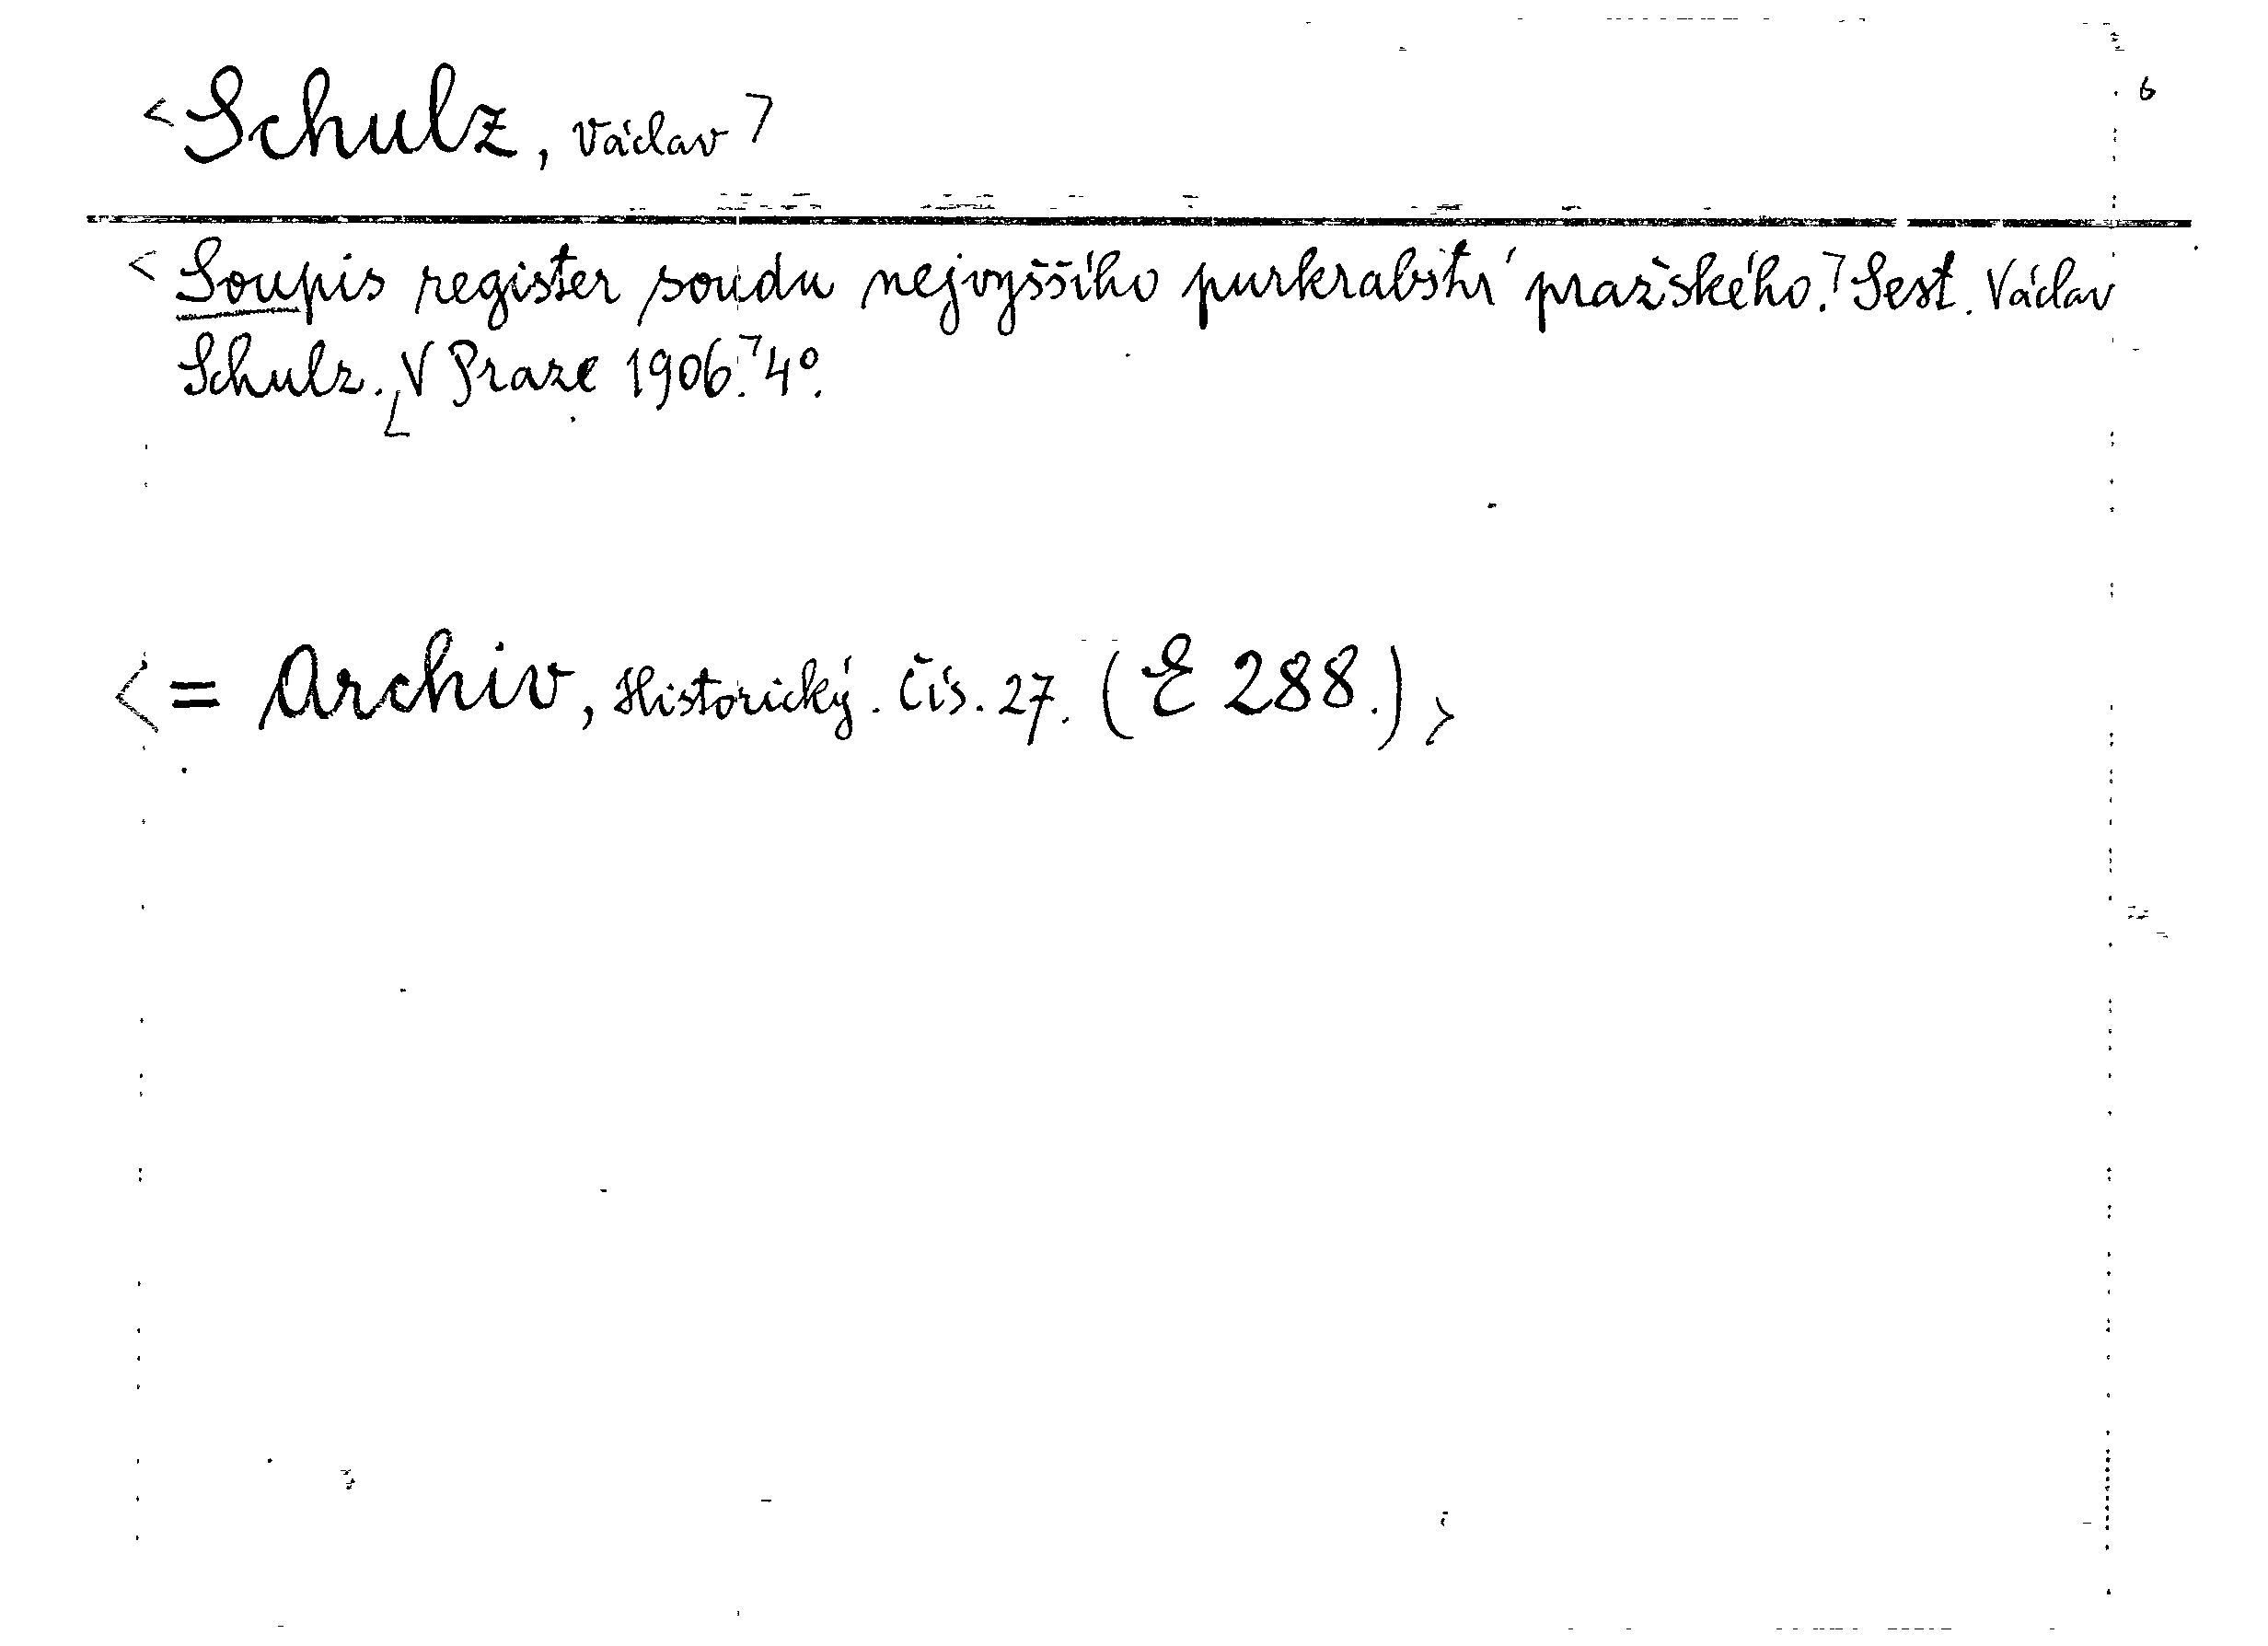 <Schulz, Václav> 6
<Soupis register soudu nejvyššího purkrabství pražského.> Sest. Václav
Schulz. <V Praze 1906.> 4°.
<= Archiv, Historický. Čís. 27. (E 288.)>